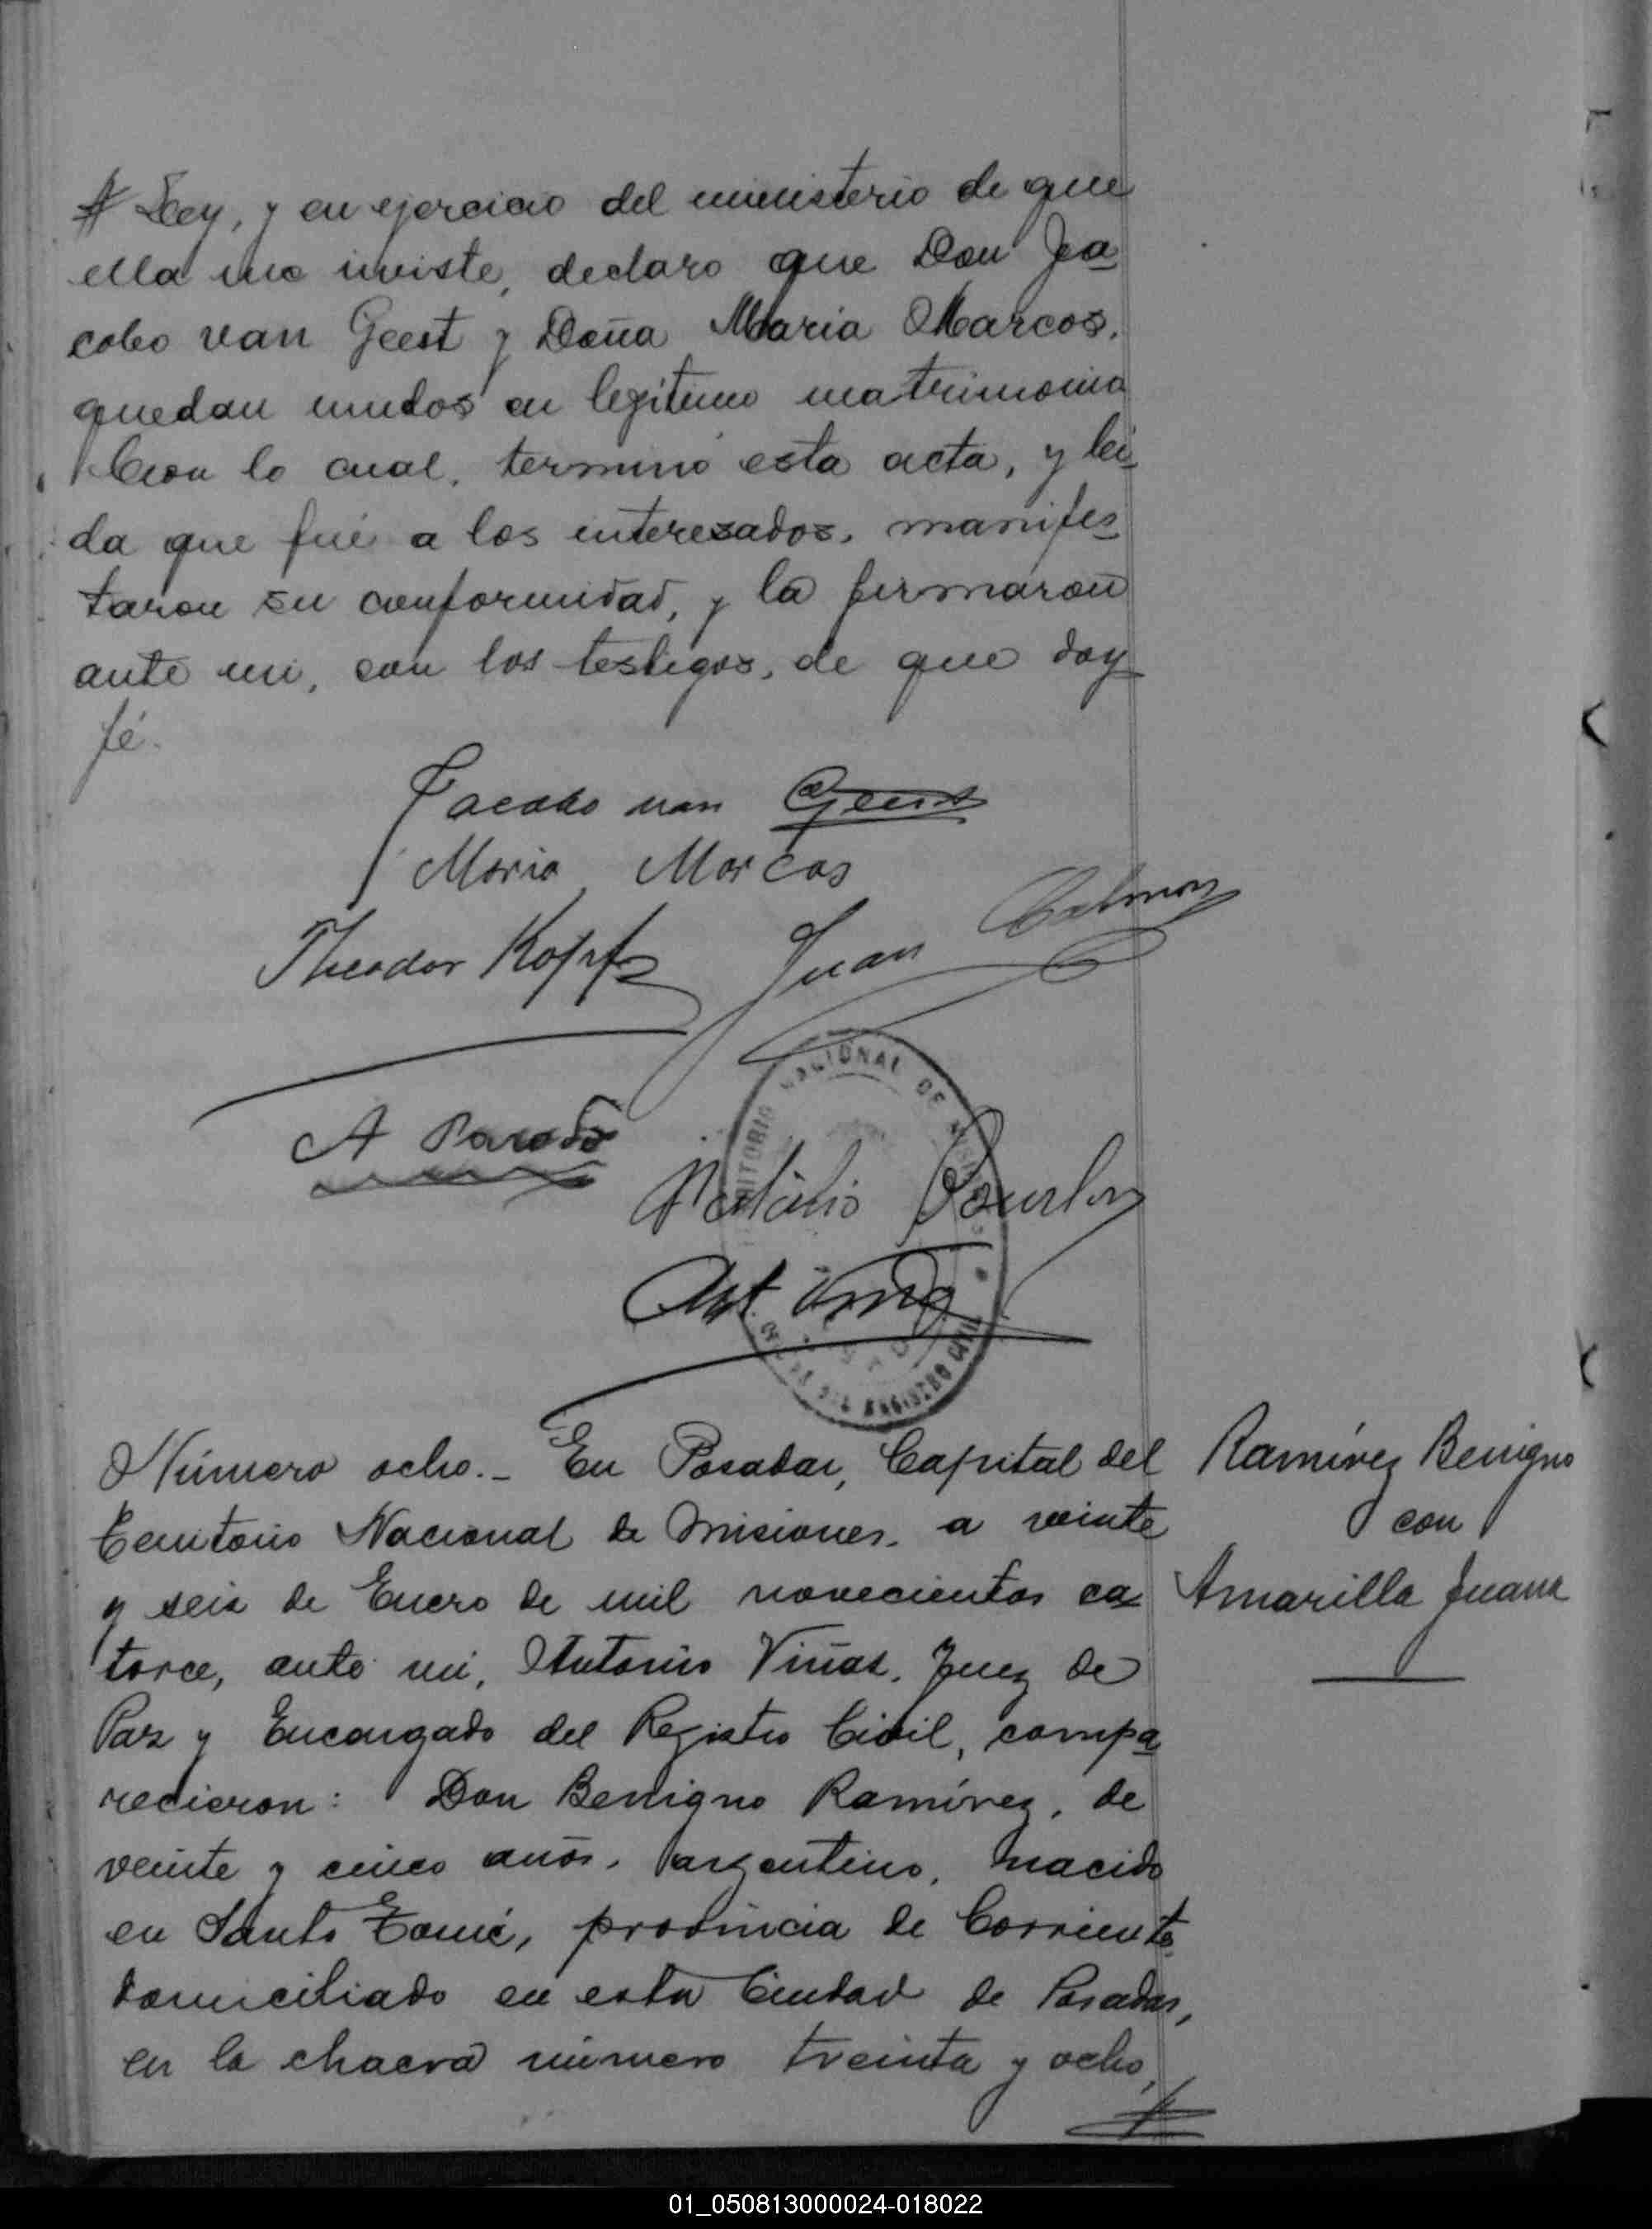 # Ley, y en ejercicio del ministerio de que
ella me inviste, declaro que Don Ja
cobo van Geest y Doña Maria Marcos,
quedan unidos en legítimo matrimonio
Con lo cual, terminó esta acta, y lei
da que fué a los interesados, manifes
taron su conformidad, y la firmaron
ante mi, con los testigos, de que doy
fé.
Jacobo van Geest
Maria Marcos
Theodor Kopf Juan
A Parodi
TERRITORIO NACIONAL DE MISIONES
Natalio
Ant. Viñas
DEL REGISTRO CIVIL
Número ocho.- En Posadas, Capital del
Territorio Nacional de Misiones, a veinte
y seis de Enero de mil novecientos ca
torce, ante mi, Antonio Viñas, Juez de
Paz y Encargado del Registro Civil, compa
recieron: Don Benigno Ramírez, de
veinte y cinco años, argentino, nacido
en Santo Tomé, provincia de Corrientes
domiciliado en esta Ciudad de Posadas,
en la chacra número treinta y ocho,
#
Ramírez Benigno
con
Amarilla Juana
01_050813000024-018022